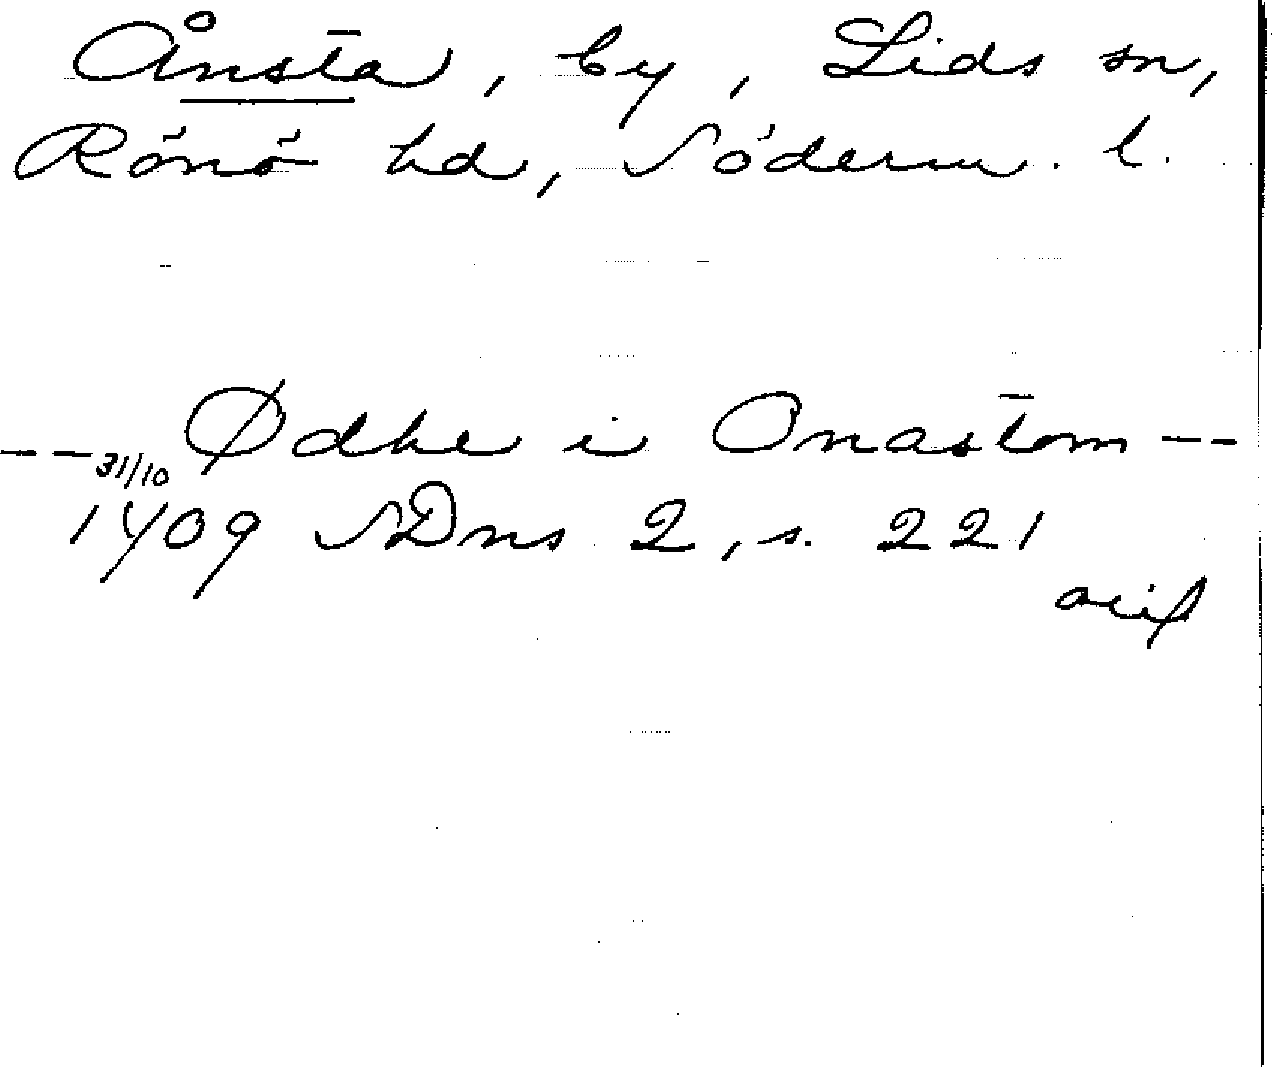 Ånsta, by, Lids sn,
Rönö hd, Söderm. l.
-- Ødhe i Onastom --
31/10 1409 SDns 2, s. 221